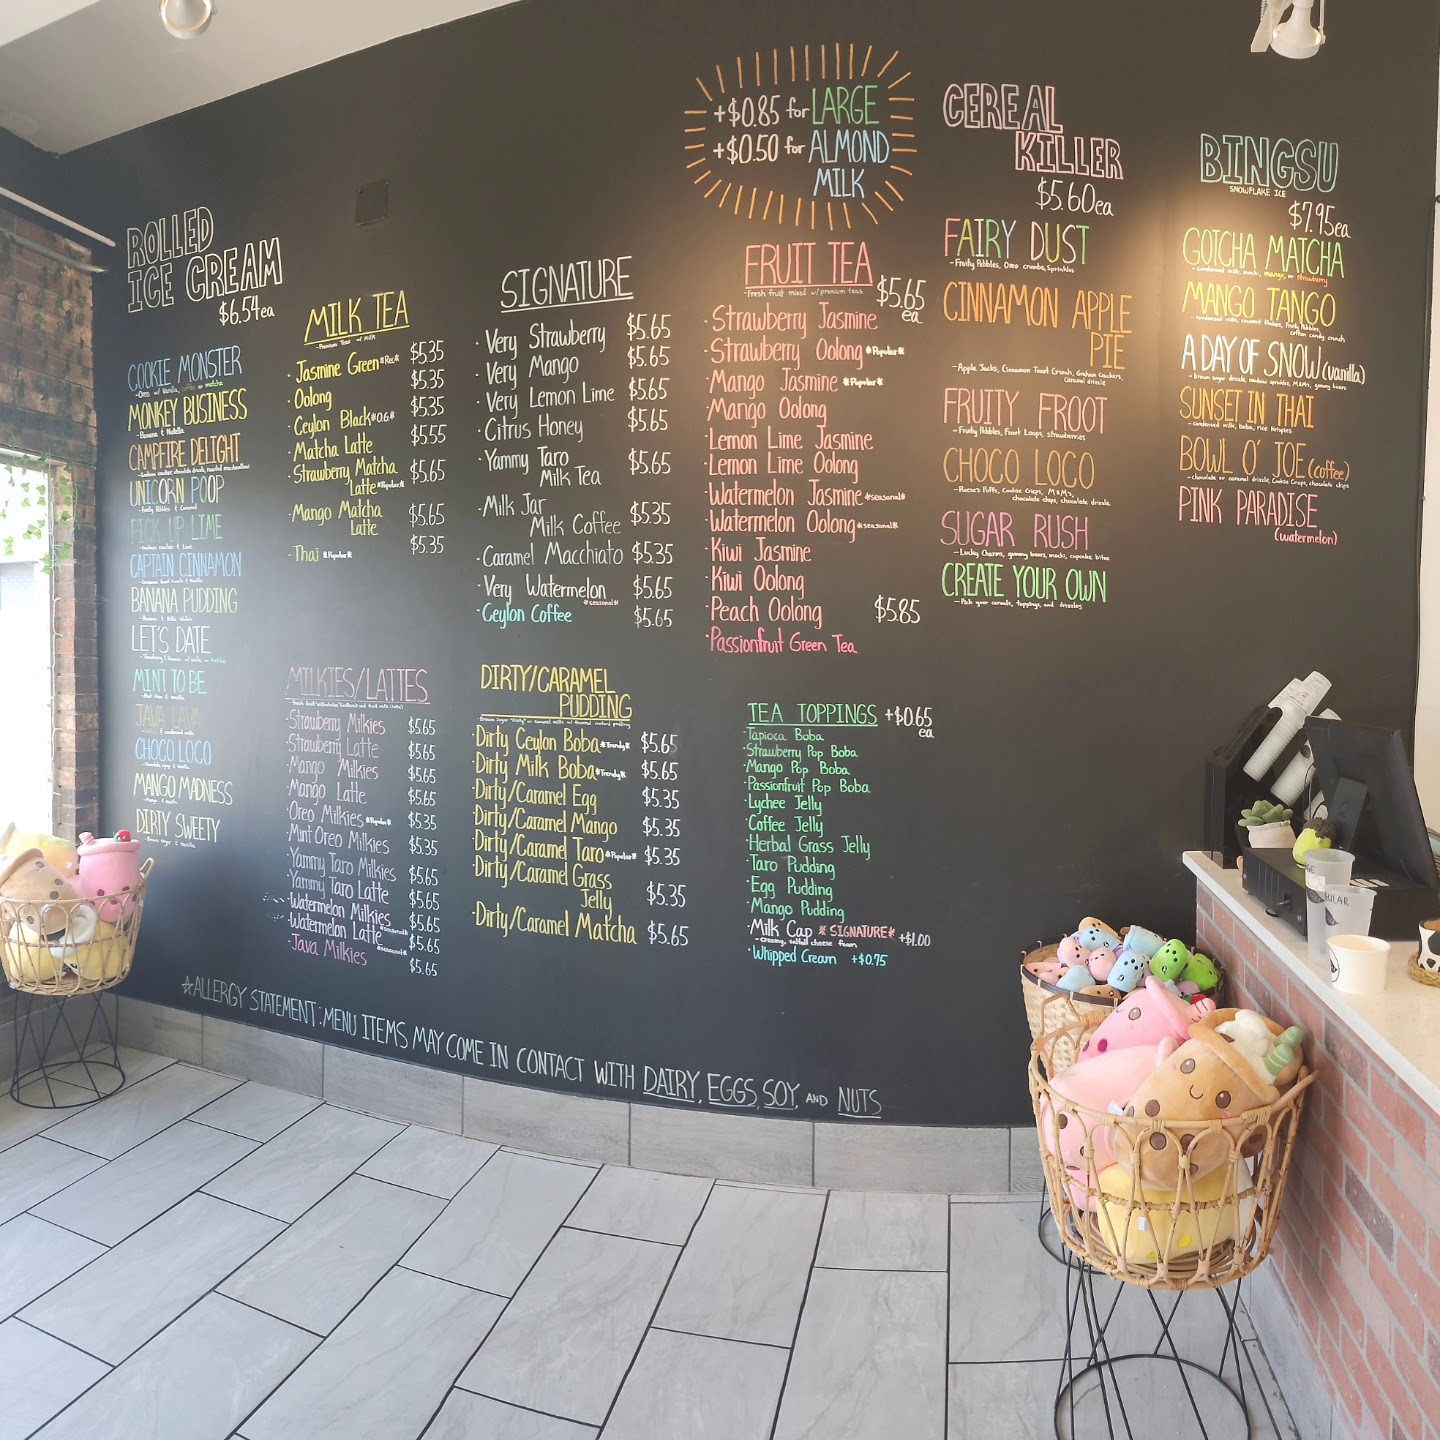 ROLLED
ICE CREAM
$6.54ea
COOKIE MONSTER
-Oreo w/ Vanilla, coffee, or matcha
MONKEY BUSINESS
-Banana & Nutella
CAMPFIRE DELIGHT
-Graham cracker, chocolate drizzle, roasted marshmallow
UNICORN POOP
-Fruity Pebbles & Caramel
PICK UP LIME
-Graham cracker & Lime
CAPTAIN CINNAMON
-Cinnamon Toast Crunch & Vanilla
BANANA PUDDING
-Banana & Nilla Wafers
LET'S DATE
-Strawberry & Banana w/ vanilla or matcha
MINT TO BE
JAVA LAVA
CHOCO LOCO
MANGO MADNESS
-Mango & Vanilla
DIRTY SWEETY
-Brown Sugar & Vanilla
MILK TEA
-Premium Teas w/ MILK
· Jasmine Green *Rec.* $5.35
· Oolong $5.35
· Ceylon Black *O.G.* $5.35
· Matcha Latte $5.55
· Strawberry Matcha
Latte *Popular* $5.65
· Mango Matcha
Latte $5.65
· Thai *Popular* $5.35
SIGNATURE
· Very Strawberry $5.65
· Very Mango $5.65
· Very Lemon Lime $5.65
· Citrus Honey $5.65
· Yammy Taro
Milk Tea $5.65
· Milk Jar
Milk Coffee $5.35
· Caramel Macchiato $5.35
· Very Watermelon $5.65
*seasonal*
· Ceylon Coffee $5.65
+$0.85 for LARGE
+$0.50 for ALMOND
MILK
FRUIT TEA
-Fresh fruit mixed w/ premium teas
$5.65
ea
· Strawberry Jasmine
· Strawberry Oolong *Popular*
· Mango Jasmine *Popular*
· Mango Oolong
· Lemon Lime Jasmine
· Lemon Lime Oolong
· Watermelon Jasmine *seasonal*
· Watermelon Oolong *seasonal*
· Kiwi Jasmine
· Kiwi Oolong
· Peach Oolong $5.85
· Passionfruit Green Tea
CEREAL
KILLER
$5.60ea
FAIRY DUST
-Fruity Pebbles, Oreo crumbs, Sprinkles
CINNAMON APPLE
PIE
-Apple Jacks, Cinnamon Toast Crunch, Graham Crackers,
Caramel drizzle
FRUITY FROOT
-Fruity Pebbles, Froot Loops, strawberries
CHOCO LOCO
-Reese's Puffs, Cookie Crisps, M&M's,
chocolate chips, chocolate drizzle
SUGAR RUSH
-Lucky Charms, gummy bears, mochi, cupcake bites
CREATE YOUR OWN
-Pick your cereals, toppings, and drizzles
BINGSU
SNOWFLAKE ICE
$7.95ea
GOTCHA MATCHA
-condensed milk, mochi, mango, or strawberry
MANGO TANGO
-condensed milk, coconut flakes, Fruity Pebbles,
cotton candy crunch
A DAY OF SNOW (vanilla)
-brown sugar drizzle, rainbow sprinkles, M&Ms, gummy bears
SUNSET IN THAI
-condensed milk, boba, rice krispies
BOWL O' JOE (coffee)
-chocolate or caramel drizzle, Cookie Crisps, chocolate chips
PINK PARADISE
(watermelon)
MILKIES/LATTES
· Strawberry Milkies $5.65
· Strawberry Latte $5.65
· Mango Milkies $5.65
· Mango Latte $5.65
· Oreo Milkies *Popular* $5.35
· Mint Oreo Milkies $5.35
· Yammy Taro Milkies $5.65
· Yammy Taro Latte $5.65
· Watermelon Milkies *seasonal* $5.65
· Watermelon Latte *seasonal* $5.65
· Java Milkies $5.65
DIRTY/CARAMEL
PUDDING
-Brown Sugar "Dirty" or Caramel milk w/ flavored custard pudding
· Dirty Ceylon Boba *Trendy* $5.65
· Dirty Milk Boba *Trendy* $5.65
· Dirty/Caramel Egg $5.35
· Dirty/Caramel Mango $5.35
· Dirty/Caramel Taro *Popular* $5.35
· Dirty/Caramel Grass
Jelly $5.35
· Dirty/Caramel Matcha $5.65
TEA TOPPINGS +$0.65
ea
· Tapioca Boba
· Strawberry Pop Boba
· Mango Pop Boba
· Passionfruit Pop Boba
· Lychee Jelly
· Coffee Jelly
· Herbal Grass Jelly
· Taro Pudding
· Egg Pudding
· Mango Pudding
· Milk Cap *SIGNATURE* +$1.00
-creamy, saltfull cheese foam
· Whipped Cream +$0.75
☆ALLERGY STATEMENT: MENU ITEMS MAY COME IN CONTACT WITH DAIRY, EGGS, SOY, AND NUTS